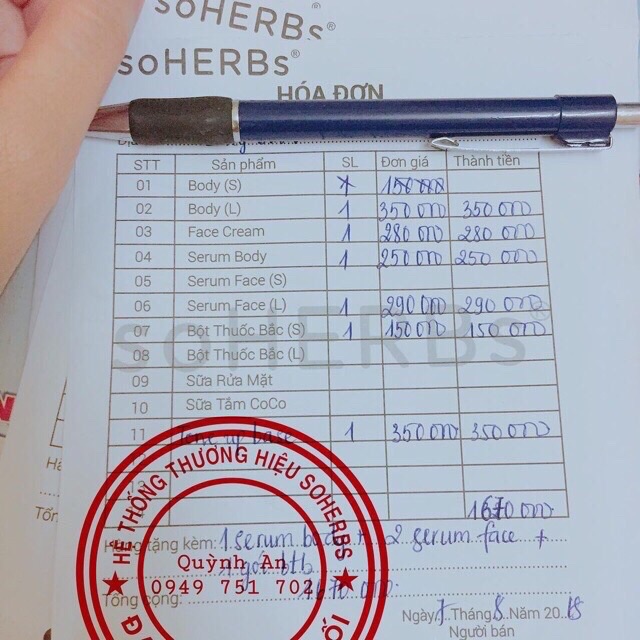 soHERBs®
soHERBs®
HÓA ĐƠN
STT Sản phẩm SL Đơn giá Thành tiền
01 Body (S) 150 000
02 Body (L) 1 350 000 350 000
03 Face Cream 1 280 000 280 000
04 Serum Body 1 250 000 250 000
05 Serum Face (S)
06 Serum Face (L) 1 290 000 290 000
07 Bột Thuốc Bắc (S) 1 150 000 150 000
soHERBs®
08 Bột Thuốc Bắc (L)
09 Sữa Rửa Mặt
10 Sữa Tắm CoCo
11 Tone up base 1 350 000 350 000
13
1670 000
HỆ THỐNG THƯƠNG HIỆU SOHERBS
Hàng tặng kèm: 1 serum body + 2 serum face +
Quỳnh An
0949 751 702
Tổng cộng: 1670 000
Ngày 7 Tháng 8 Năm 20 18
Người bán